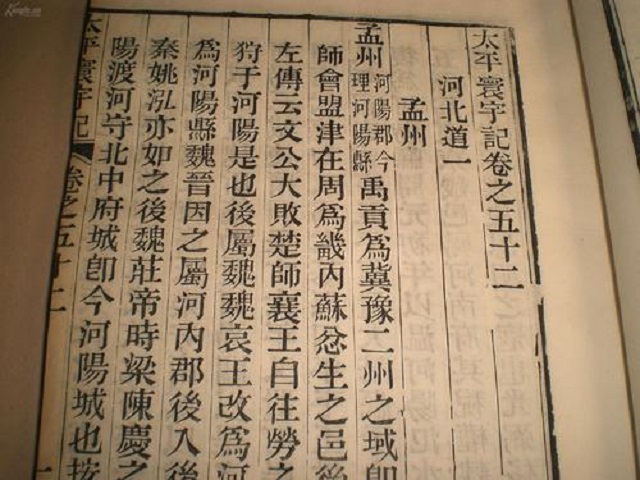 太平寰宇記卷之五十二
河北道一
孟州
孟州河陽郡今理河陽縣禹貢爲冀豫二州之域卽
師會盟津在周爲畿內蘇忿生之邑後
左傳云文公大敗楚師襄王自往勞之
狩于河陽是也後屬魏魏哀王改爲河
爲河陽縣魏晉因之屬河內郡後入後
秦姚泓亦如之後魏莊帝時梁陳慶之
陽渡河守北中府城卽今河陽城也按
太平寰宇記
卷之五十二